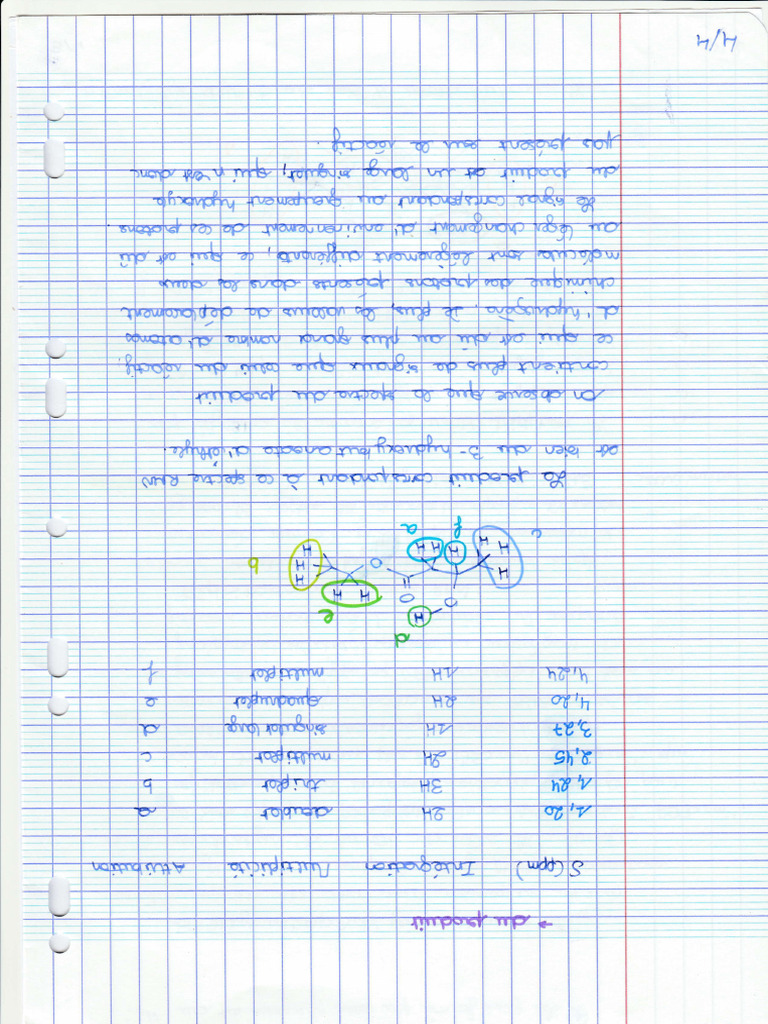 → du produit
δ (ppm) Intégration Multiplicité Attribution
1,20 2H doublet a
1,24 3H triplet b
2,45 2H multiplet c
3,27 1H singulet large d
4,20 2H quadruplet e
4,24 1H multiplet f
d e
H O O H H H
c H H H H H H O H H b
f a
Le produit correspondant à ce spectre RMN
est bien du 3-hydroxybutanoate d'éthyle.
On observe que le spectre du produit
contient plus de signaux que celui du réactif,
ce qui est dû au plus grand nombre d'atomes
d'hydrogène. De plus, les valeurs de déplacement
chimique des protons présents dans les deux
molécules sont légèrement différents, ce qui est dû
au léger changement d'environnement de ces protons.
Le signal correspondant au groupement hydroxyle
du produit est un large singulet, qui n'est donc
pas présent sur le réactif.
4/4